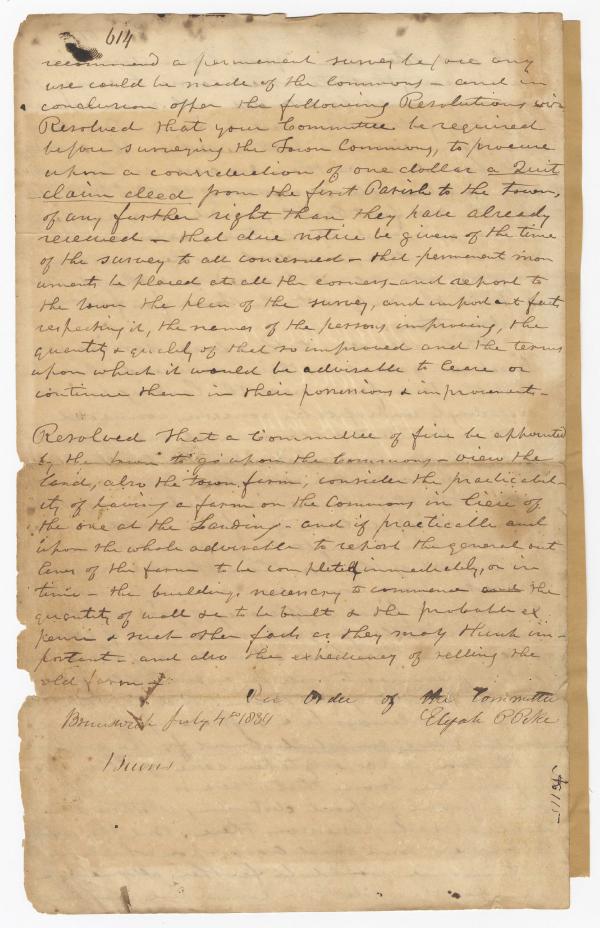 614
recommend a permanent survey before any
use could be made of the Commons - and in
conclusion offer the following Resolutions viz
Resolved that your Committee be required
before surveying the Town Commons, to procure
upon a consideration of one dollar a Quit
claim deed from the first Parish to the town,
of any further right than they have already
received - that due notice be given of the time
of the survey to all concerned - that permanent mon
uments be placed at all the corners - and report to
the town the plan of the survey, and important facts
respecting it, the names of the persons improving, the
quantity & quality of that so improved and the terms
upon which it would be advisable to lease or
continue them in their possessions & improvements -
Resolved that a Committee of five be appointed
by the town to go upon the Commons - view the
land, also the town farm, consider the practicabil-
ity of having a farm on the Commons in liew of
the one at the Landing - and if practicable and
upon the whole advisable to report the general out
lines of the farm to be completed immediately, or in
time - the buildings necessary to commence and the
quantity of wall &c to be built & the probable ex
pense & such other facts as they may think im-
portant - and also the expediency of selling the
old farm
Per Order of the Committee
Brunswick July 4th 1834 Elijah P Pike